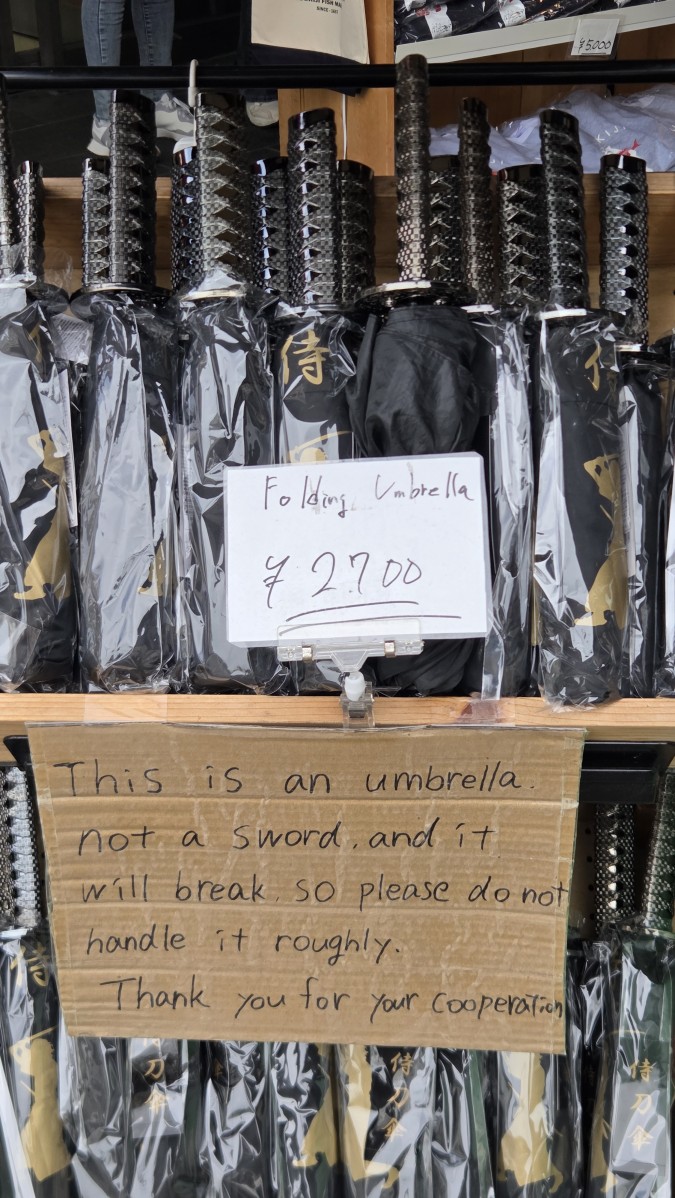 SINCE
¥5000
侍
Folding Umbrella
¥2700
This is an umbrella.
not a sword, and it
will break, so please do not
handle it roughly.
Thank you for your cooperation
侍
侍刀傘
侍刀傘
侍刀傘